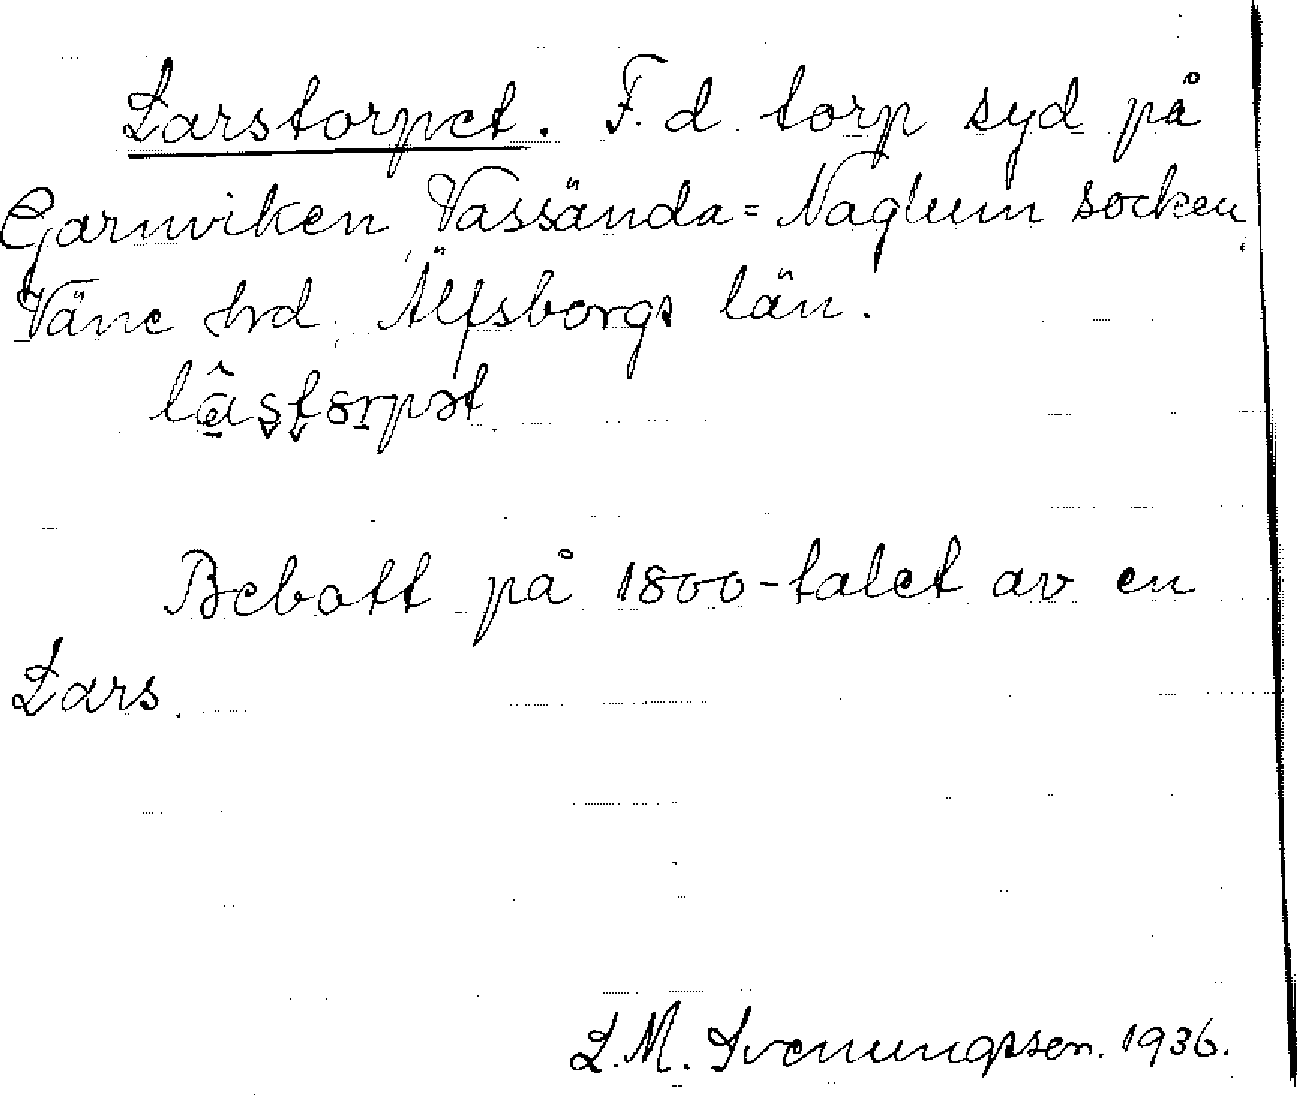 Larstorpet. F. d. torp syd på
Garnviken, Vassända=Naglum socken,
Väne hrd, Älfsborgs län.
lâstorpət
Bebott på 1800-talet av en
Lars.
L. M. Svenungsson. 1936.